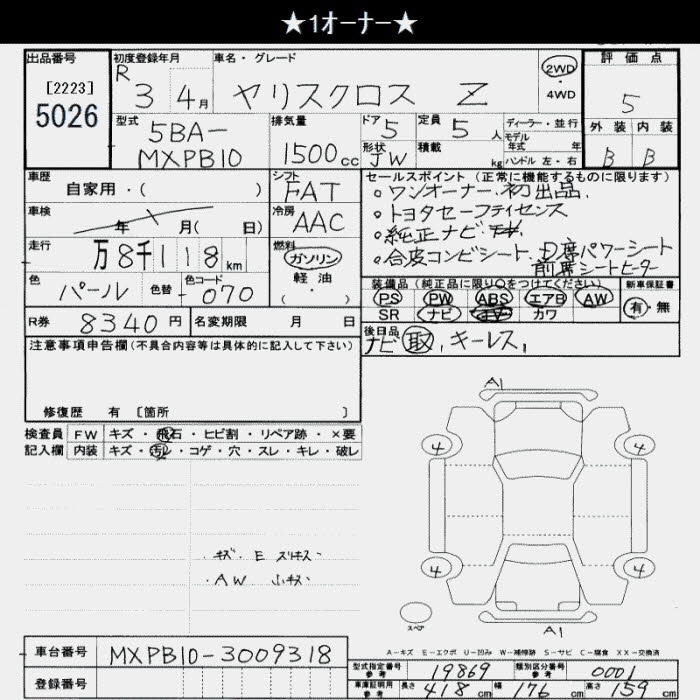 ★1オーナー★
出品番号
[2223]
5026
初度登録年月
R 3 4月
車名・グレード
ヤリスクロス Z
2WD
・
4WD
評価点
5
型式
5BA-
MXPB10
排気量
1500cc
ドア 5
形状 JW
定員 5人
積載 kg
ディーラー・並行
モデル
年式 年
ハンドル 左・右
外装 内装
B B
車歴
自家用・( )
シフト
FAT
車検
年 月( 日)
冷房
AAC
走行
万8千118km
燃料
ガソリン
軽油
( ・ )
色
パール
色替
色コード
070
セールスポイント (正常に機能するものに限ります)
・ワンオーナー、初出品、
・トヨタセーフティセンス、
・純正ナビ
・合皮コンビシート、D席パワーシート
前席シートヒーター
装備品(純正品に限り○をつけてください)
PS PW ABS エアB AW
SR ナビ TV カワ
新車保証書
有・無
R券 8340円
名変期限 月 日
後日品
ナビ取、キーレス、
注意事項申告欄(不具合内容等は具体的に記入して下さい)
修復歴 有 [箇所 ]
検査員 FW キズ・飛石・ヒビ割・リペア跡・×要
記入欄 内装 キズ・汚レ・コゲ・穴・スレ・キレ・破レ
A1
4 4
・キズ・E スリキズ
・AW 小キズ
4 4
スペア
A1
A-キズ E-エクボ U-凹み W-補修跡 S-サビ C-腐食 XX-交換済
車台番号 MXPB10-3009318
登録番号
型式指定番号
参考
19869
類別区分番号
参考
0001
車庫証明用
参考
長さ 418cm 幅 176cm 高さ 159cm